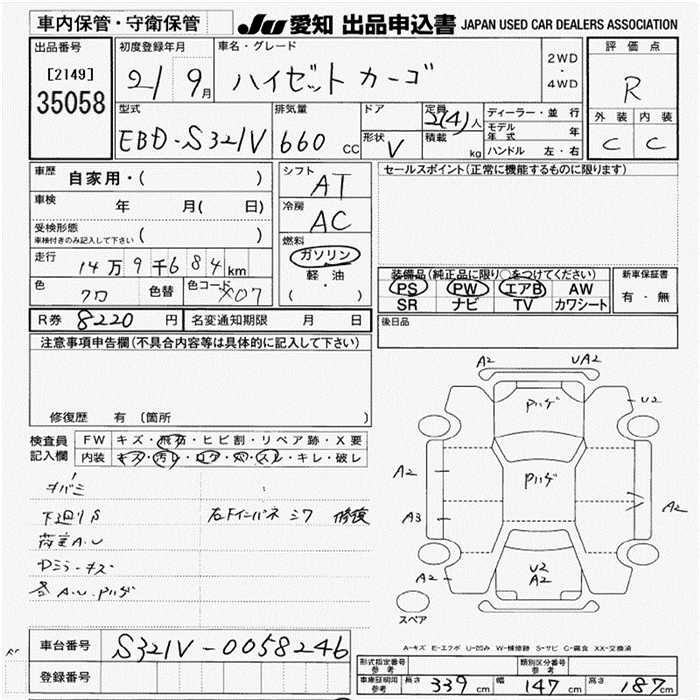 車内保管・守衛保管
JU 愛知 出品申込書 JAPAN USED CAR DEALERS ASSOCIATION
出品番号
[2149]
35058
初度登録年月
21 9月
車名・グレード
ハイゼット カーゴ
2WD
・
4WD
評価点
R
外装 内装
C C
型式
EBD-S321V
排気量
660 CC
ドア
形状
V
定員
2(4)人
積載
kg
ディーラー・並行
モデル年式 年
ハンドル 左・右
車歴
自家用・( )
車検
年 月( 日)
受検形態
車検付きのみ記入して下さい ( )
走行
14万9千684km
色
クロ
色替
色コード
X07
シフト
AT
冷房
AC
燃料
ガソリン
・
軽油
( )
セールスポイント(正常に機能するものに限ります)
装備品(純正品に限り○をつけてください)
PS PW エアB AW
SR ナビ TV カワシート
新車保証書
有・無
R券 8220 円
名変通知期限 月 日
後日品
注意事項申告欄(不具合内容等は具体的に記入して下さい)
修復歴 有 〔箇所 〕
検査員記入欄
FW キズ・飛石・ヒビ割・リペア跡・X要
内装 キズ・汚レ・コゲ・穴・スレ・キレ・破レ
下廻りS
右下インパネ ミワ 修復
荷室A.U
Dミラーキズ
各A.U.Pハゲ
A2 UA2
Pハゲ
U2
Pハゲ
A2
A2
A3
A2
U2
A2
スペア
A-キズ E-エクボ U-凹み W-補修跡 S-サビ C-腐食 XX-交換済
車台番号 S321V-0058246
登録番号
形式指定番号 参考
類別区分番号 参考
車庫証明用 参考
長さ 339 cm 幅 147 cm 高さ 187 cm